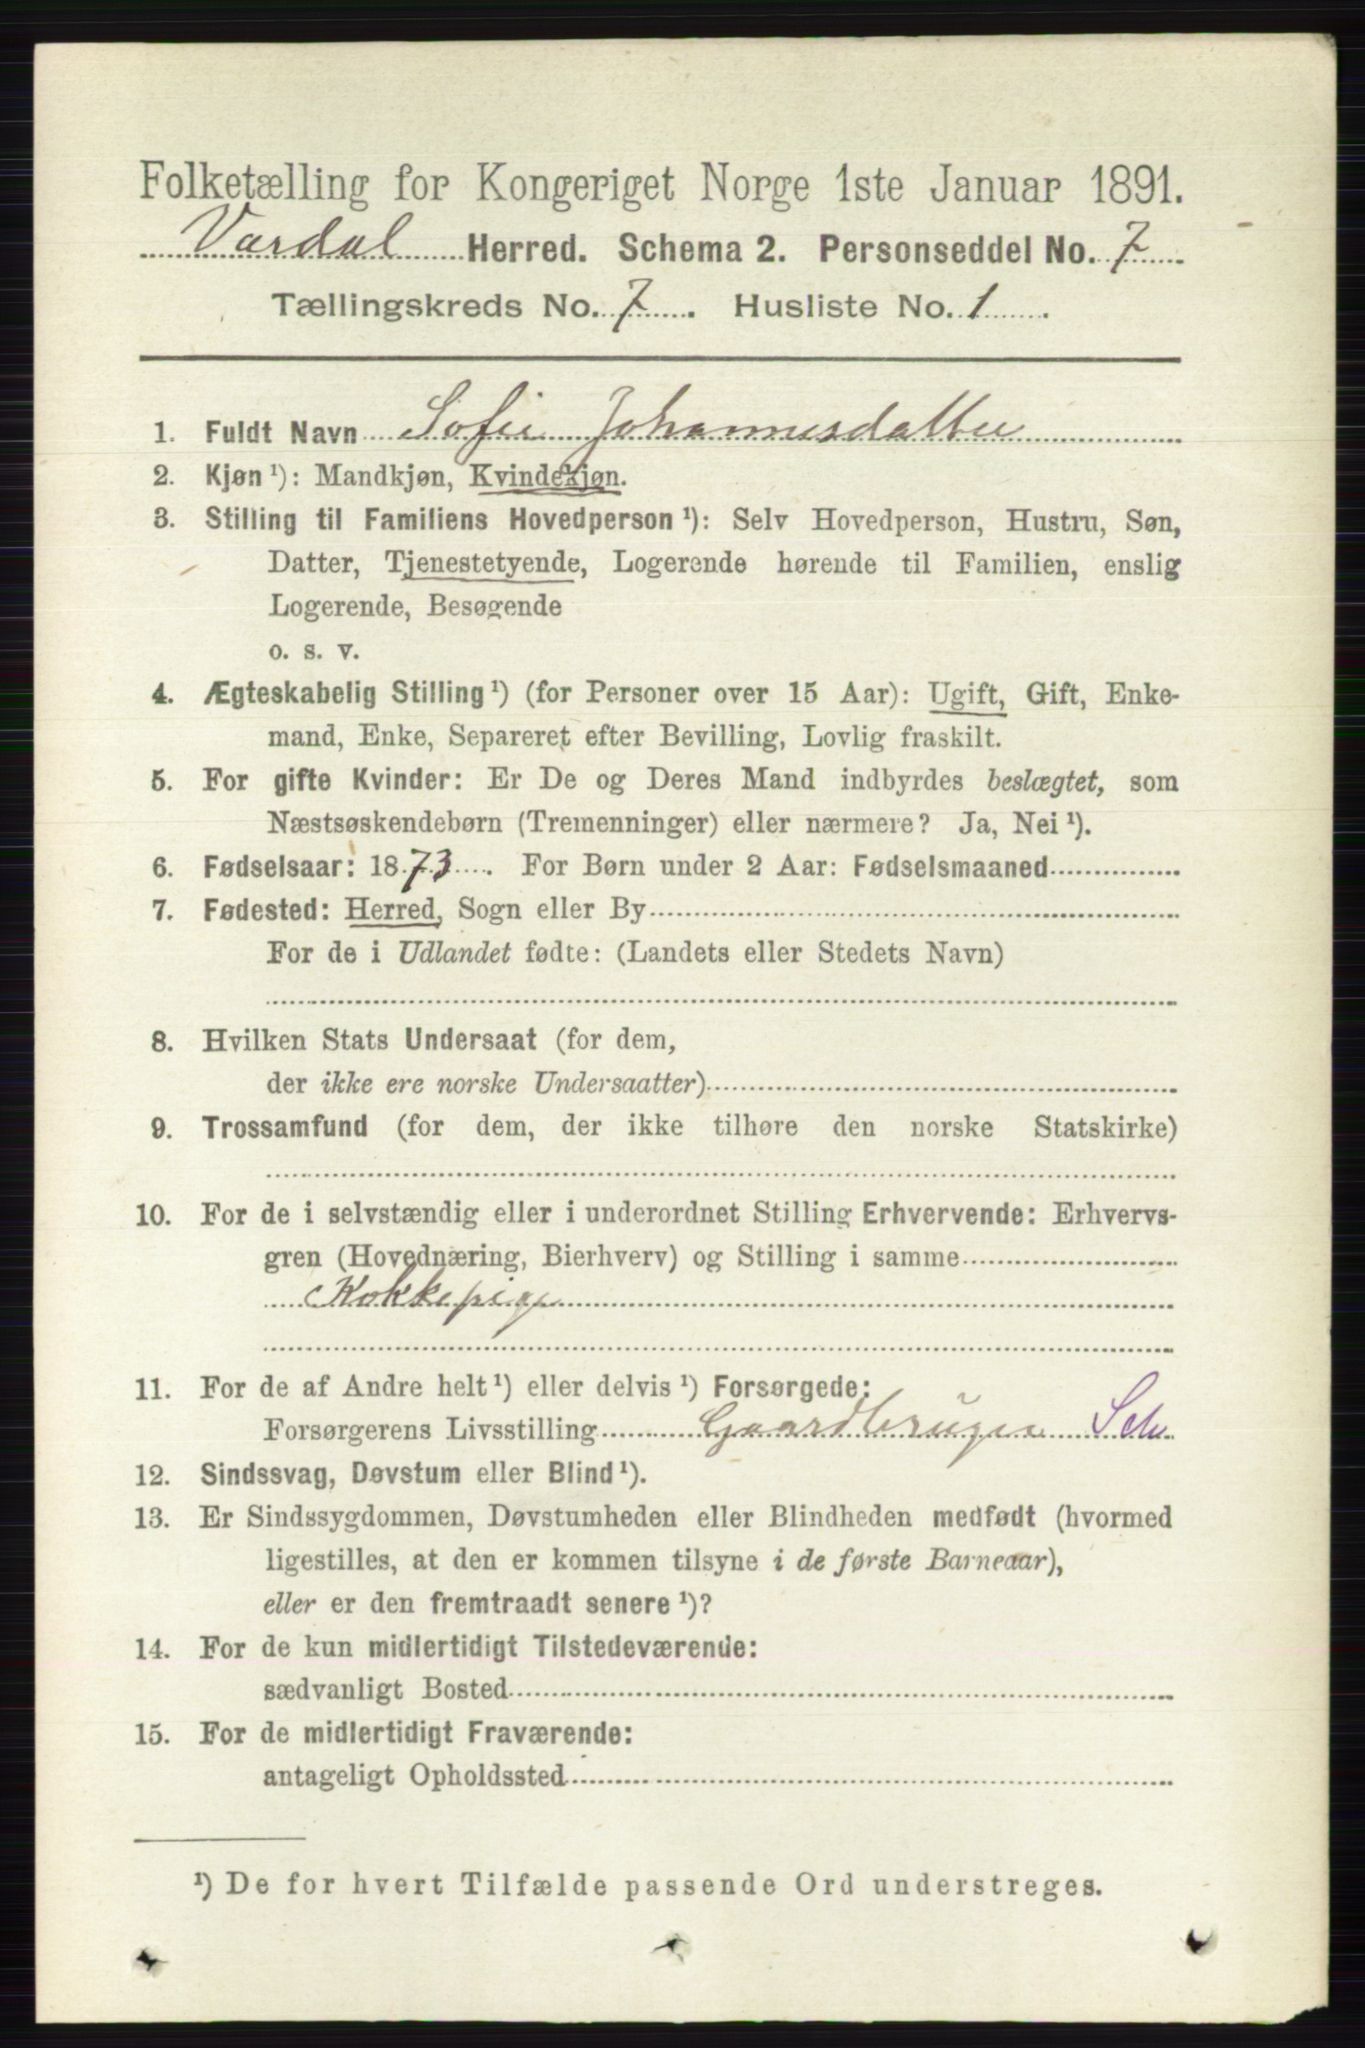 Folketælling for Kongeriget Norge 1ste Januar 1891.
Vardal Herred. Schema 2. Personseddel No. 7
Tællingskreds No. 7. Husliste No. 1.
1. Fuldt Navn Sofie Johannesdatter
2. Kjøn ¹): Mandkjøn, Kvindekjøn.
3. Stilling til Familiens Hovedperson ¹): Selv Hovedperson, Hustru, Søn,
Datter, Tjenestetyende, Logerende hørende til Familien, enslig
Logerende, Besøgende
o. s. v.
4. Ægteskabelig Stilling ¹) (for Personer over 15 Aar): Ugift, Gift, Enke-
mand, Enke, Separeret efter Bevilling, Lovlig fraskilt.
5. For gifte Kvinder: Er De og Deres Mand indbyrdes beslægtet, som
Næstsøskendebørn (Tremenninger) eller nærmere? Ja, Nei ¹).
6. Fødselsaar: 1873. For Børn under 2 Aar: Fødselsmaaned
7. Fødested: Herred, Sogn eller By
For de i Udlandet fødte: (Landets eller Stedets Navn)
8. Hvilken Stats Undersaat (for dem,
der ikke ere norske Undersaatter)
9. Trossamfund (for dem, der ikke tilhøre den norske Statskirke)
10. For de i selvstændig eller i underordnet Stilling Erhvervende: Erhvervs-
gren (Hovednæring, Bierhverv) og Stilling i samme
Kokkepige
11. For de af Andre helt ¹) eller delvis ¹) Forsørgede:
Forsørgerens Livsstilling Gaardbruger
12. Sindssvag, Døvstum eller Blind ¹).
13. Er Sindssygdommen, Døvstumheden eller Blindheden medfødt (hvormed
ligestilles, at den er kommen tilsyne i de første Barneaar),
eller er den fremtraadt senere ¹)?
14. For de kun midlertidigt Tilstedeværende:
sædvanligt Bosted
15. For de midlertidigt Fraværende:
antageligt Opholdssted
¹) De for hvert Tilfælde passende Ord understreges.